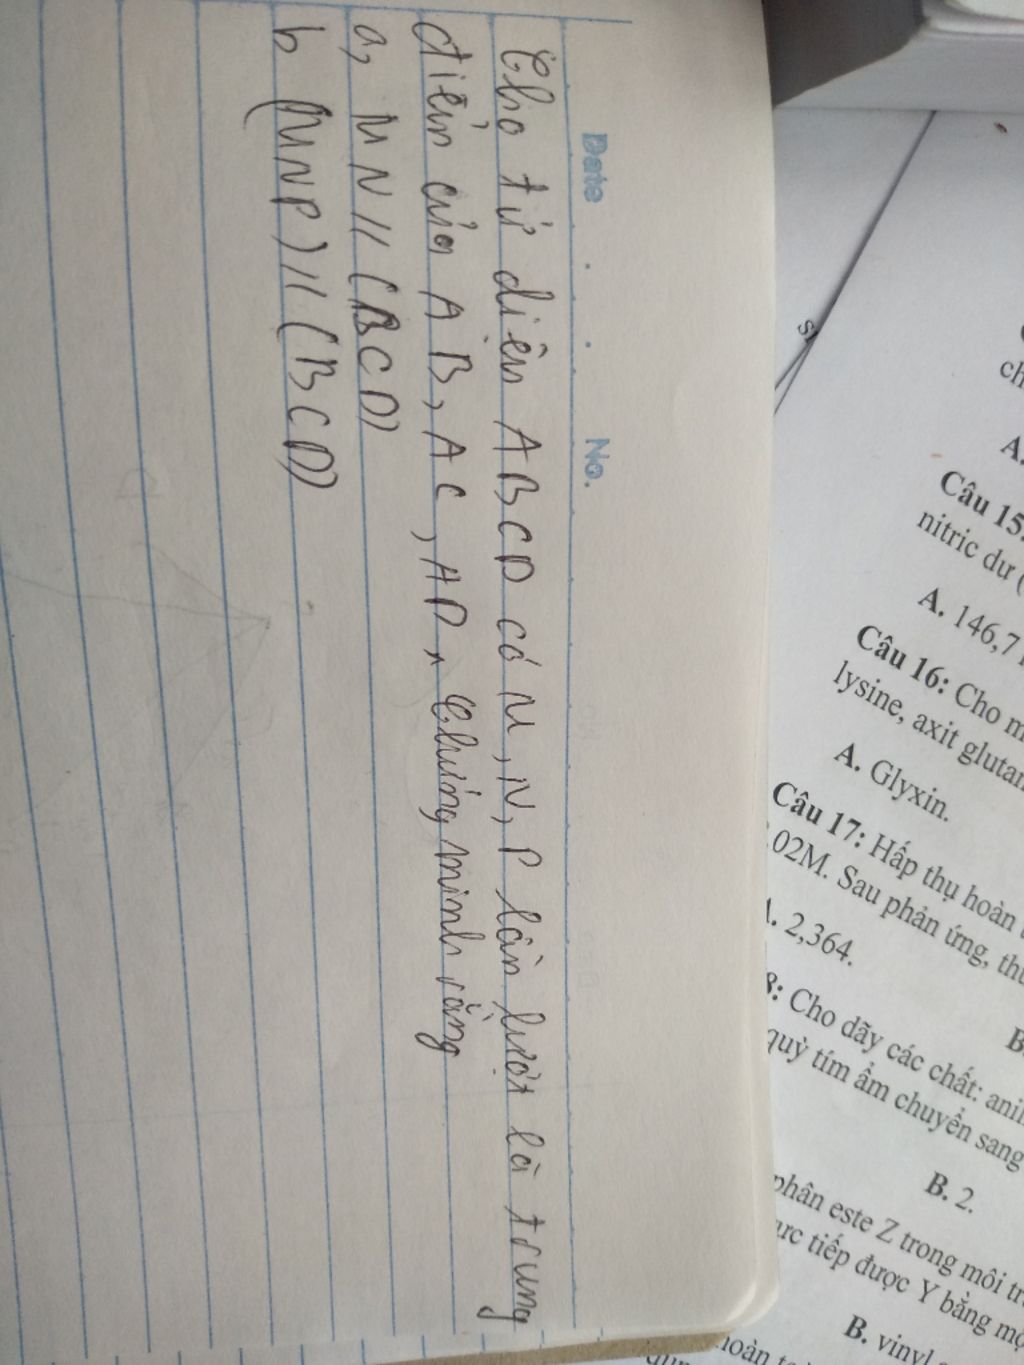 Date . . . No.
Cho tứ diện ABCD có M, N, P lần lượt là trung
điểm của AB, AC, AD. Chứng minh rằng
a, MN // (BCD)
b (MNP) // (BCD)
ch
A.
Câu 15.
nitric dư (
A. 146,7
Câu 16: Cho m
lysine, axit glutan
A. Glyxin.
Câu 17: Hấp thụ hoàn
,02M. Sau phản ứng, thu
A. 2,364.
B.
8: Cho dãy các chất: anil
quỳ tím ẩm chuyển sang
B. 2.
phân este Z trong môi trư
ực tiếp được Y bằng mộ
B. vinyl
hoàn to